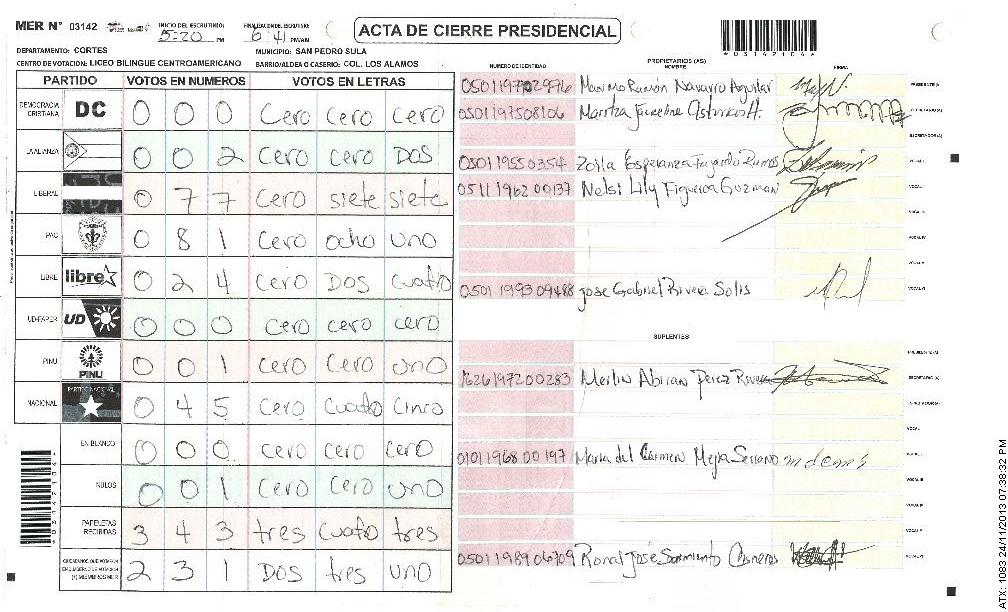 MER N° 03142
INICIO DEL ESCRUTINIO: 5:20 PM
FINALIZACION DEL ESCRUTINIO: 6:41 PM/AM
ACTA DE CIERRE PRESIDENCIAL
DEPARTAMENTO: CORTES
MUNICIPIO: SAN PEDRO SULA
CENTRO DE VOTACION: LICEO BILINGUE CENTROAMERICANO
BARRIO/ALDEA O CASERIO: COL. LOS ALAMOS
PARTIDO VOTOS EN NUMEROS VOTOS EN LETRAS
DEMOCRACIA CRISTIANA DC 0 0 0 Cero Cero Cero
LA ALIANZA 0 0 2 Cero Cero DOS
LIBERAL 0 7 7 Cero siete siete
PAC 0 8 1 Cero ocho uno
LIBRE libre 0 2 4 Cero DOS cuatro
UD-FAPER UD 0 0 0 Cero cero cero
PINU PINU 0 0 1 Cero Cero uno
NACIONAL PARTIDO NACIONAL 0 4 5 Cero cuatro cinco
EN BLANCO 0 0 0 Cero Cero cero
NULOS 0 0 1 Cero Cero uno
PAPELETAS RECIBIDAS 3 4 3 tres cuatro tres
2 3 1 DOS tres uno
NUMERO DE IDENTIDAD PROPIETARIOS (AS) NOMBRE FIRMA
Maximo Ramón Navarro Aguilar PRESIDENTE(A)
0501197508106 Maritza Jackeline Asturias H.
Zoila Esperanza Fajardo Ramos
0511196200137 Nelsi Lily Figueroa Guzman
0501199309488 Jose Gabriel Rivera Solis
SUPLENTES
1626197200283 Merlin Abiran Perez Rivera
0101196800197 Maria del Carmen Mejia Serrano
0501198906709 Ronal José Sarmiento Cisneros
ATX: 1083 24/11/2013 07:38:32 PM